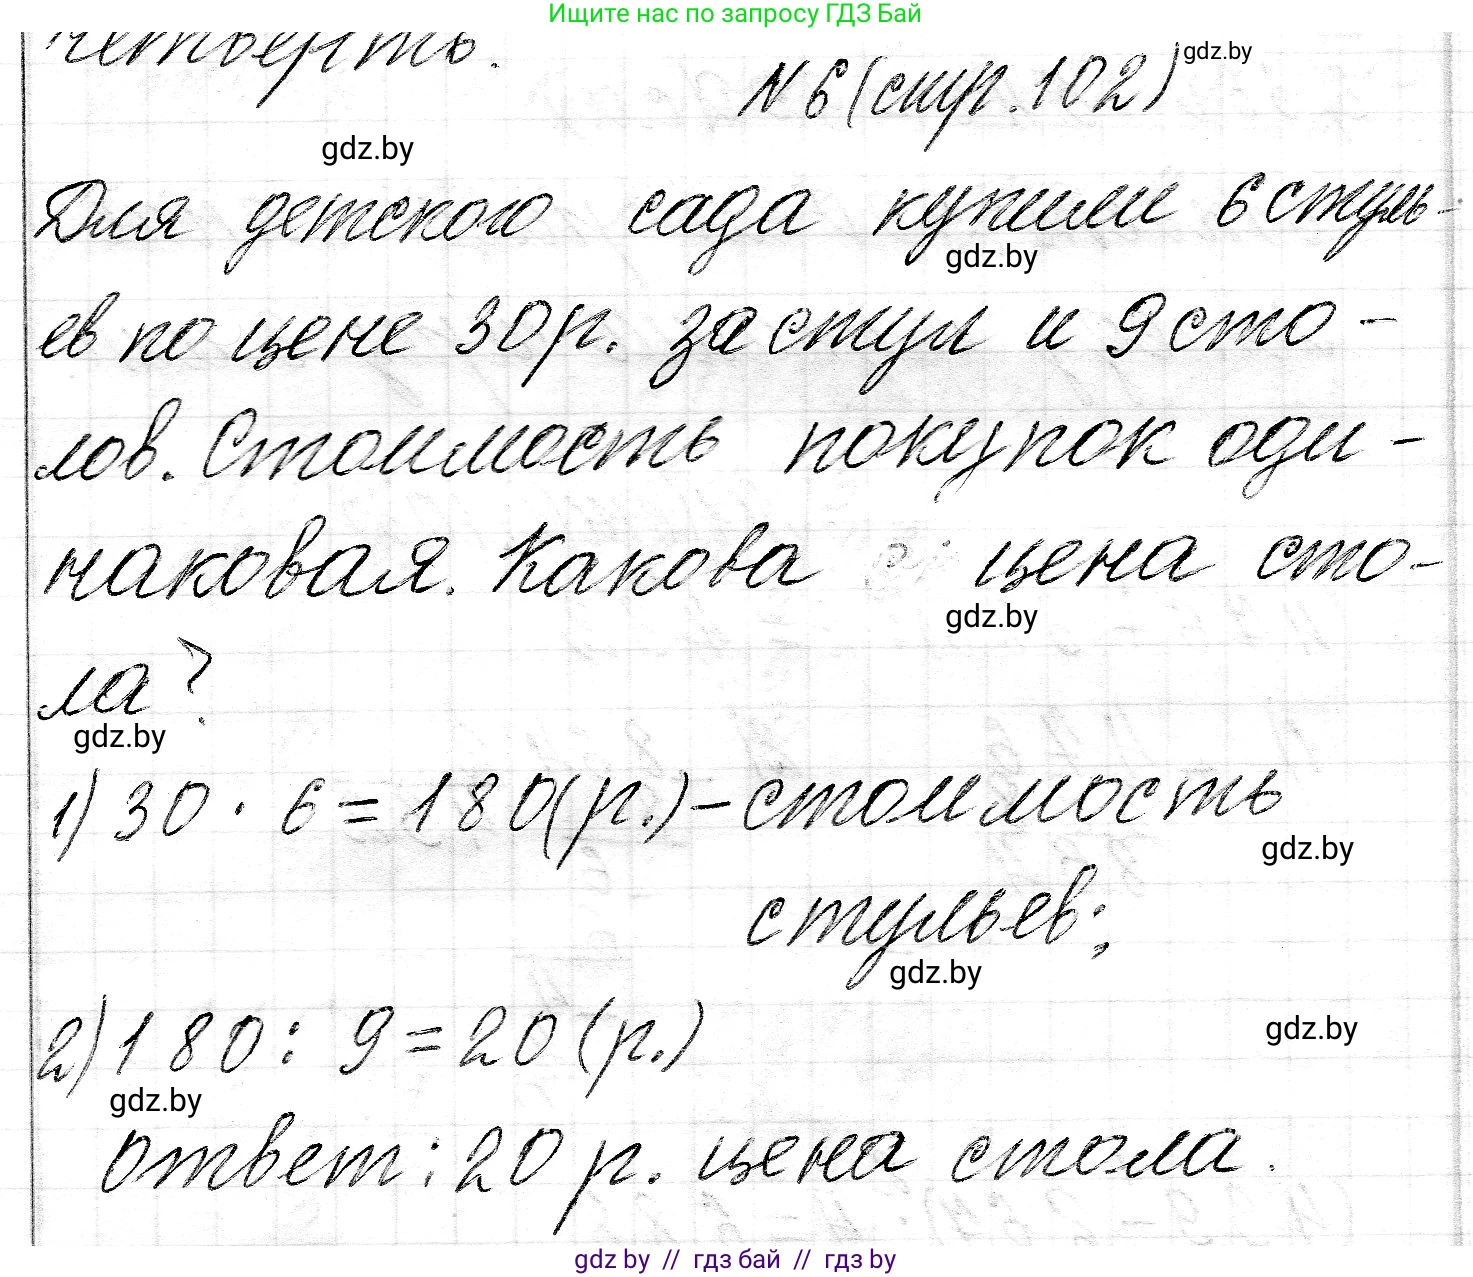 Ищите нас по запросу ГДЗ Бай
четверть.
gdz.by
N 6 (стр. 102)
gdz.by
Для детского сада купили 6 стуль-
gdz.by
ев по цене 30 р. за стул и 9 сто-
лов. Стоимость покупок оди-
наковая. Какова цена сто-
gdz.by
ла?
gdz.by
1) 30 · 6 = 180 (р.) - стоимость
gdz.by
стульев;
gdz.by
2) 180 : 9 = 20 (р.)
gdz.by
gdz.by
Ответ: 20 р. цена стола.
gdz.by // гдз бай // гдз by